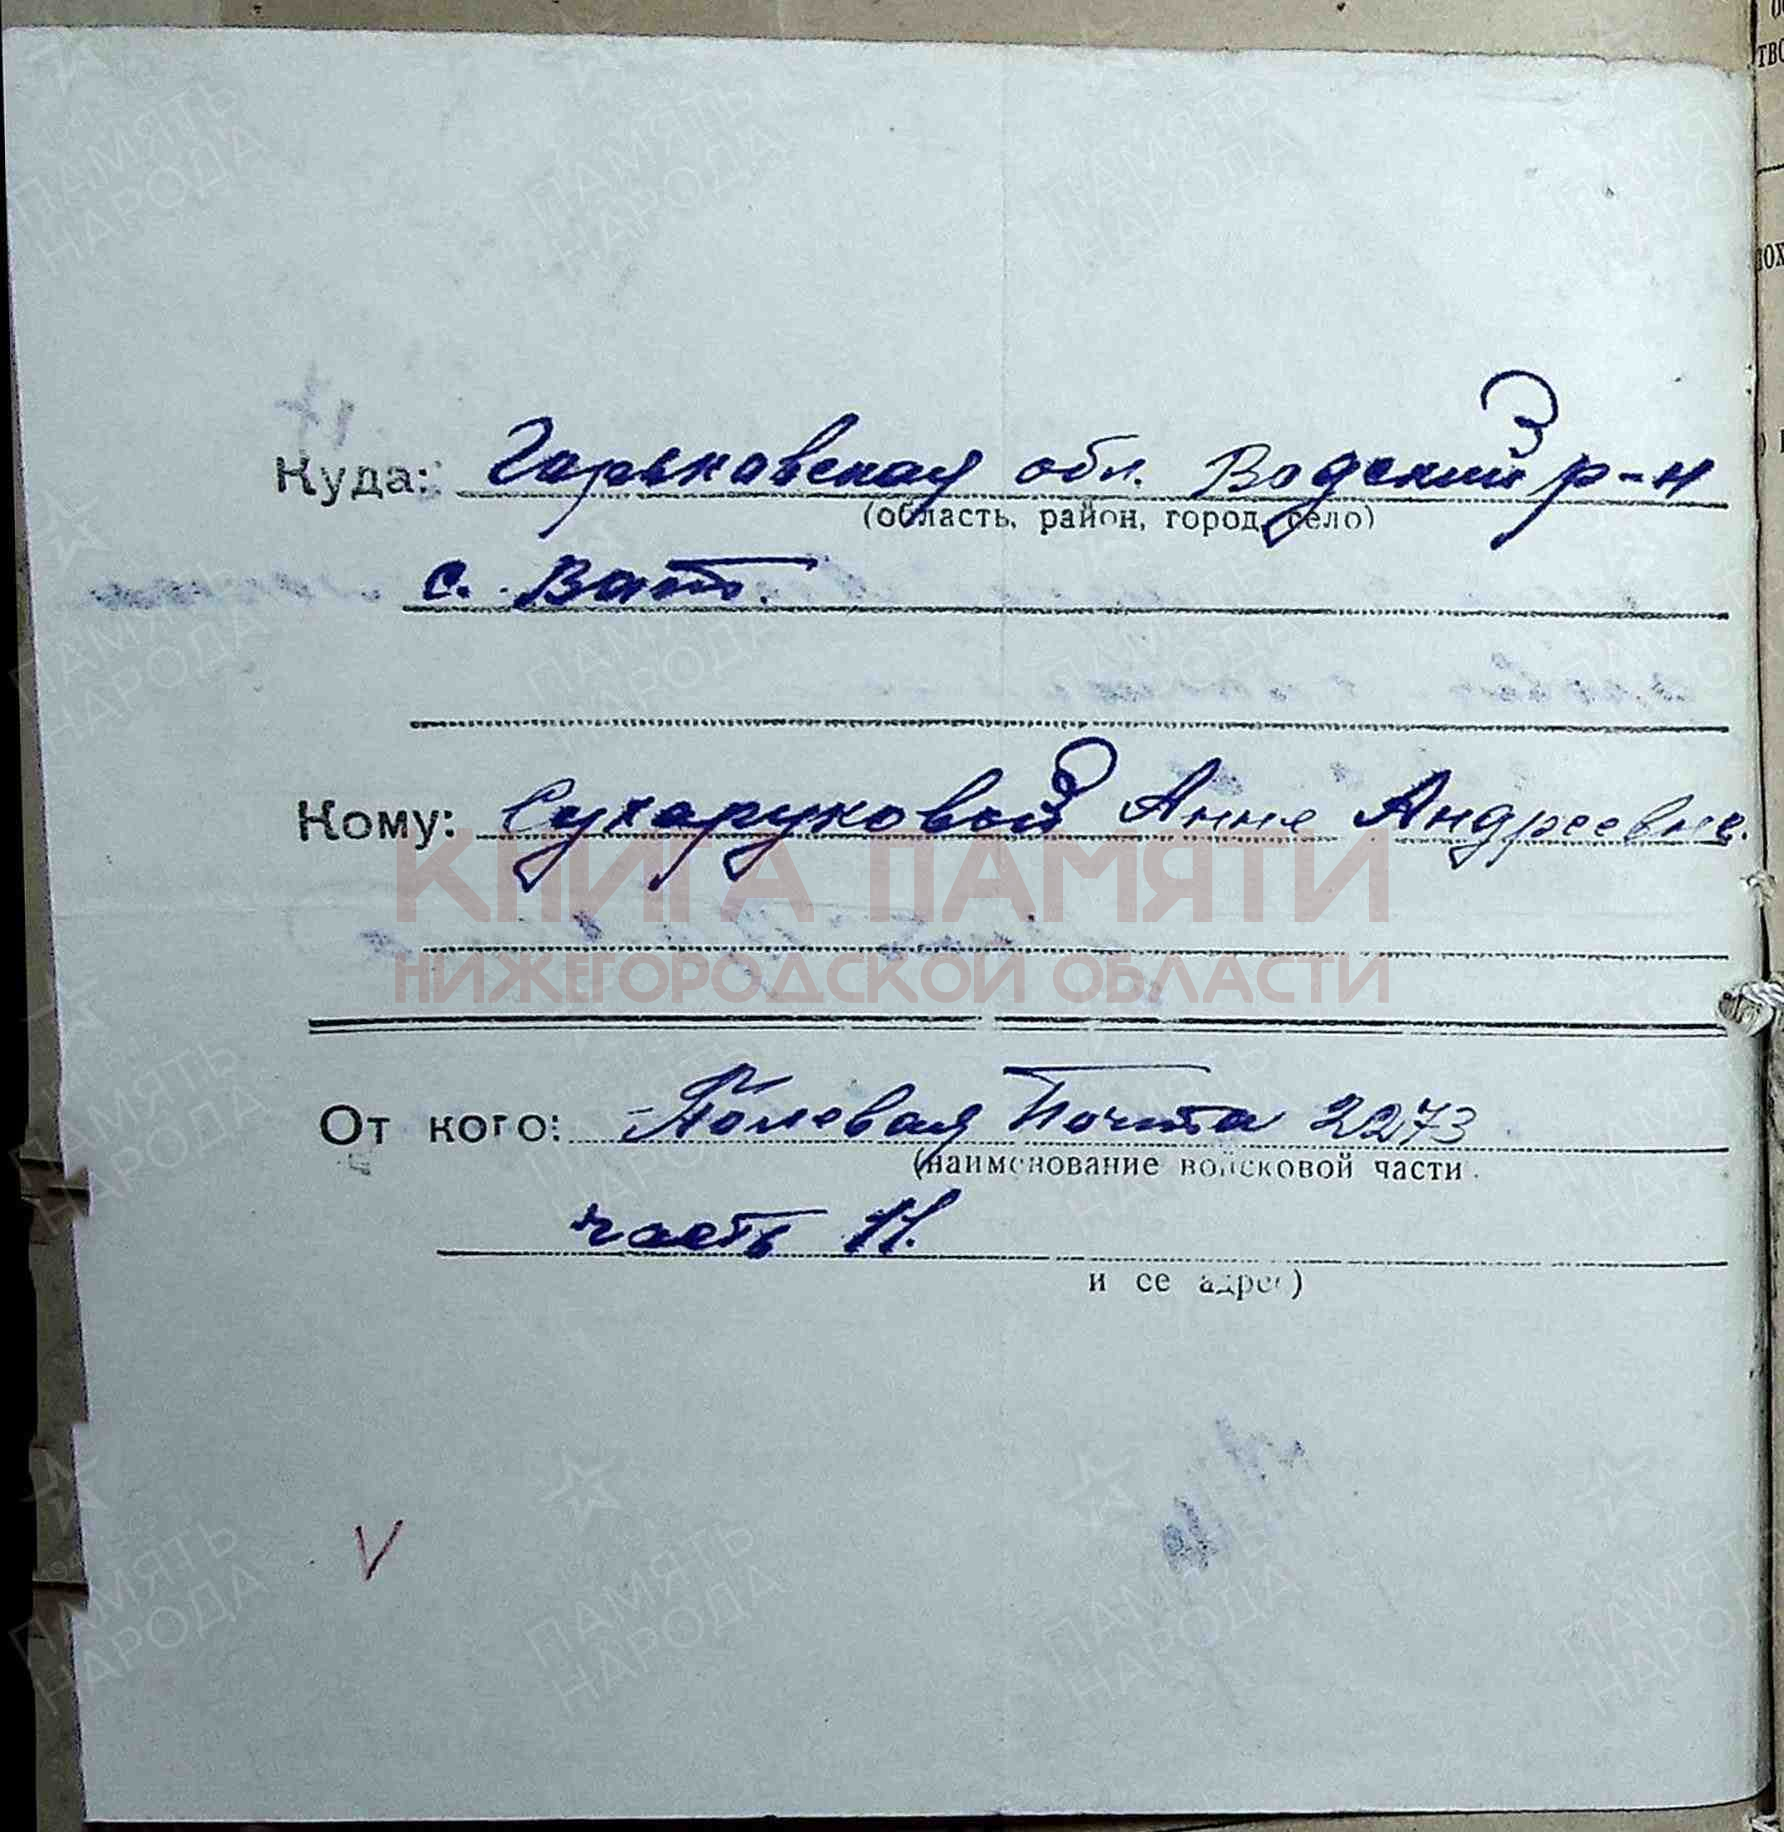 Куда: Горьковская обл. Водский р-н
(область, район, город, село)
с. Ват.
Кому: Сухаруковой Анне Андреевне.
КНИГА ПАМЯТИ
НИЖЕГОРОДСКОЙ ОБЛАСТИ
От кого: Полевая Почта 2273
(наименование войсковой части
часть 11.
и ее адрес)
V
ПАМЯТЬ
НАРОДА